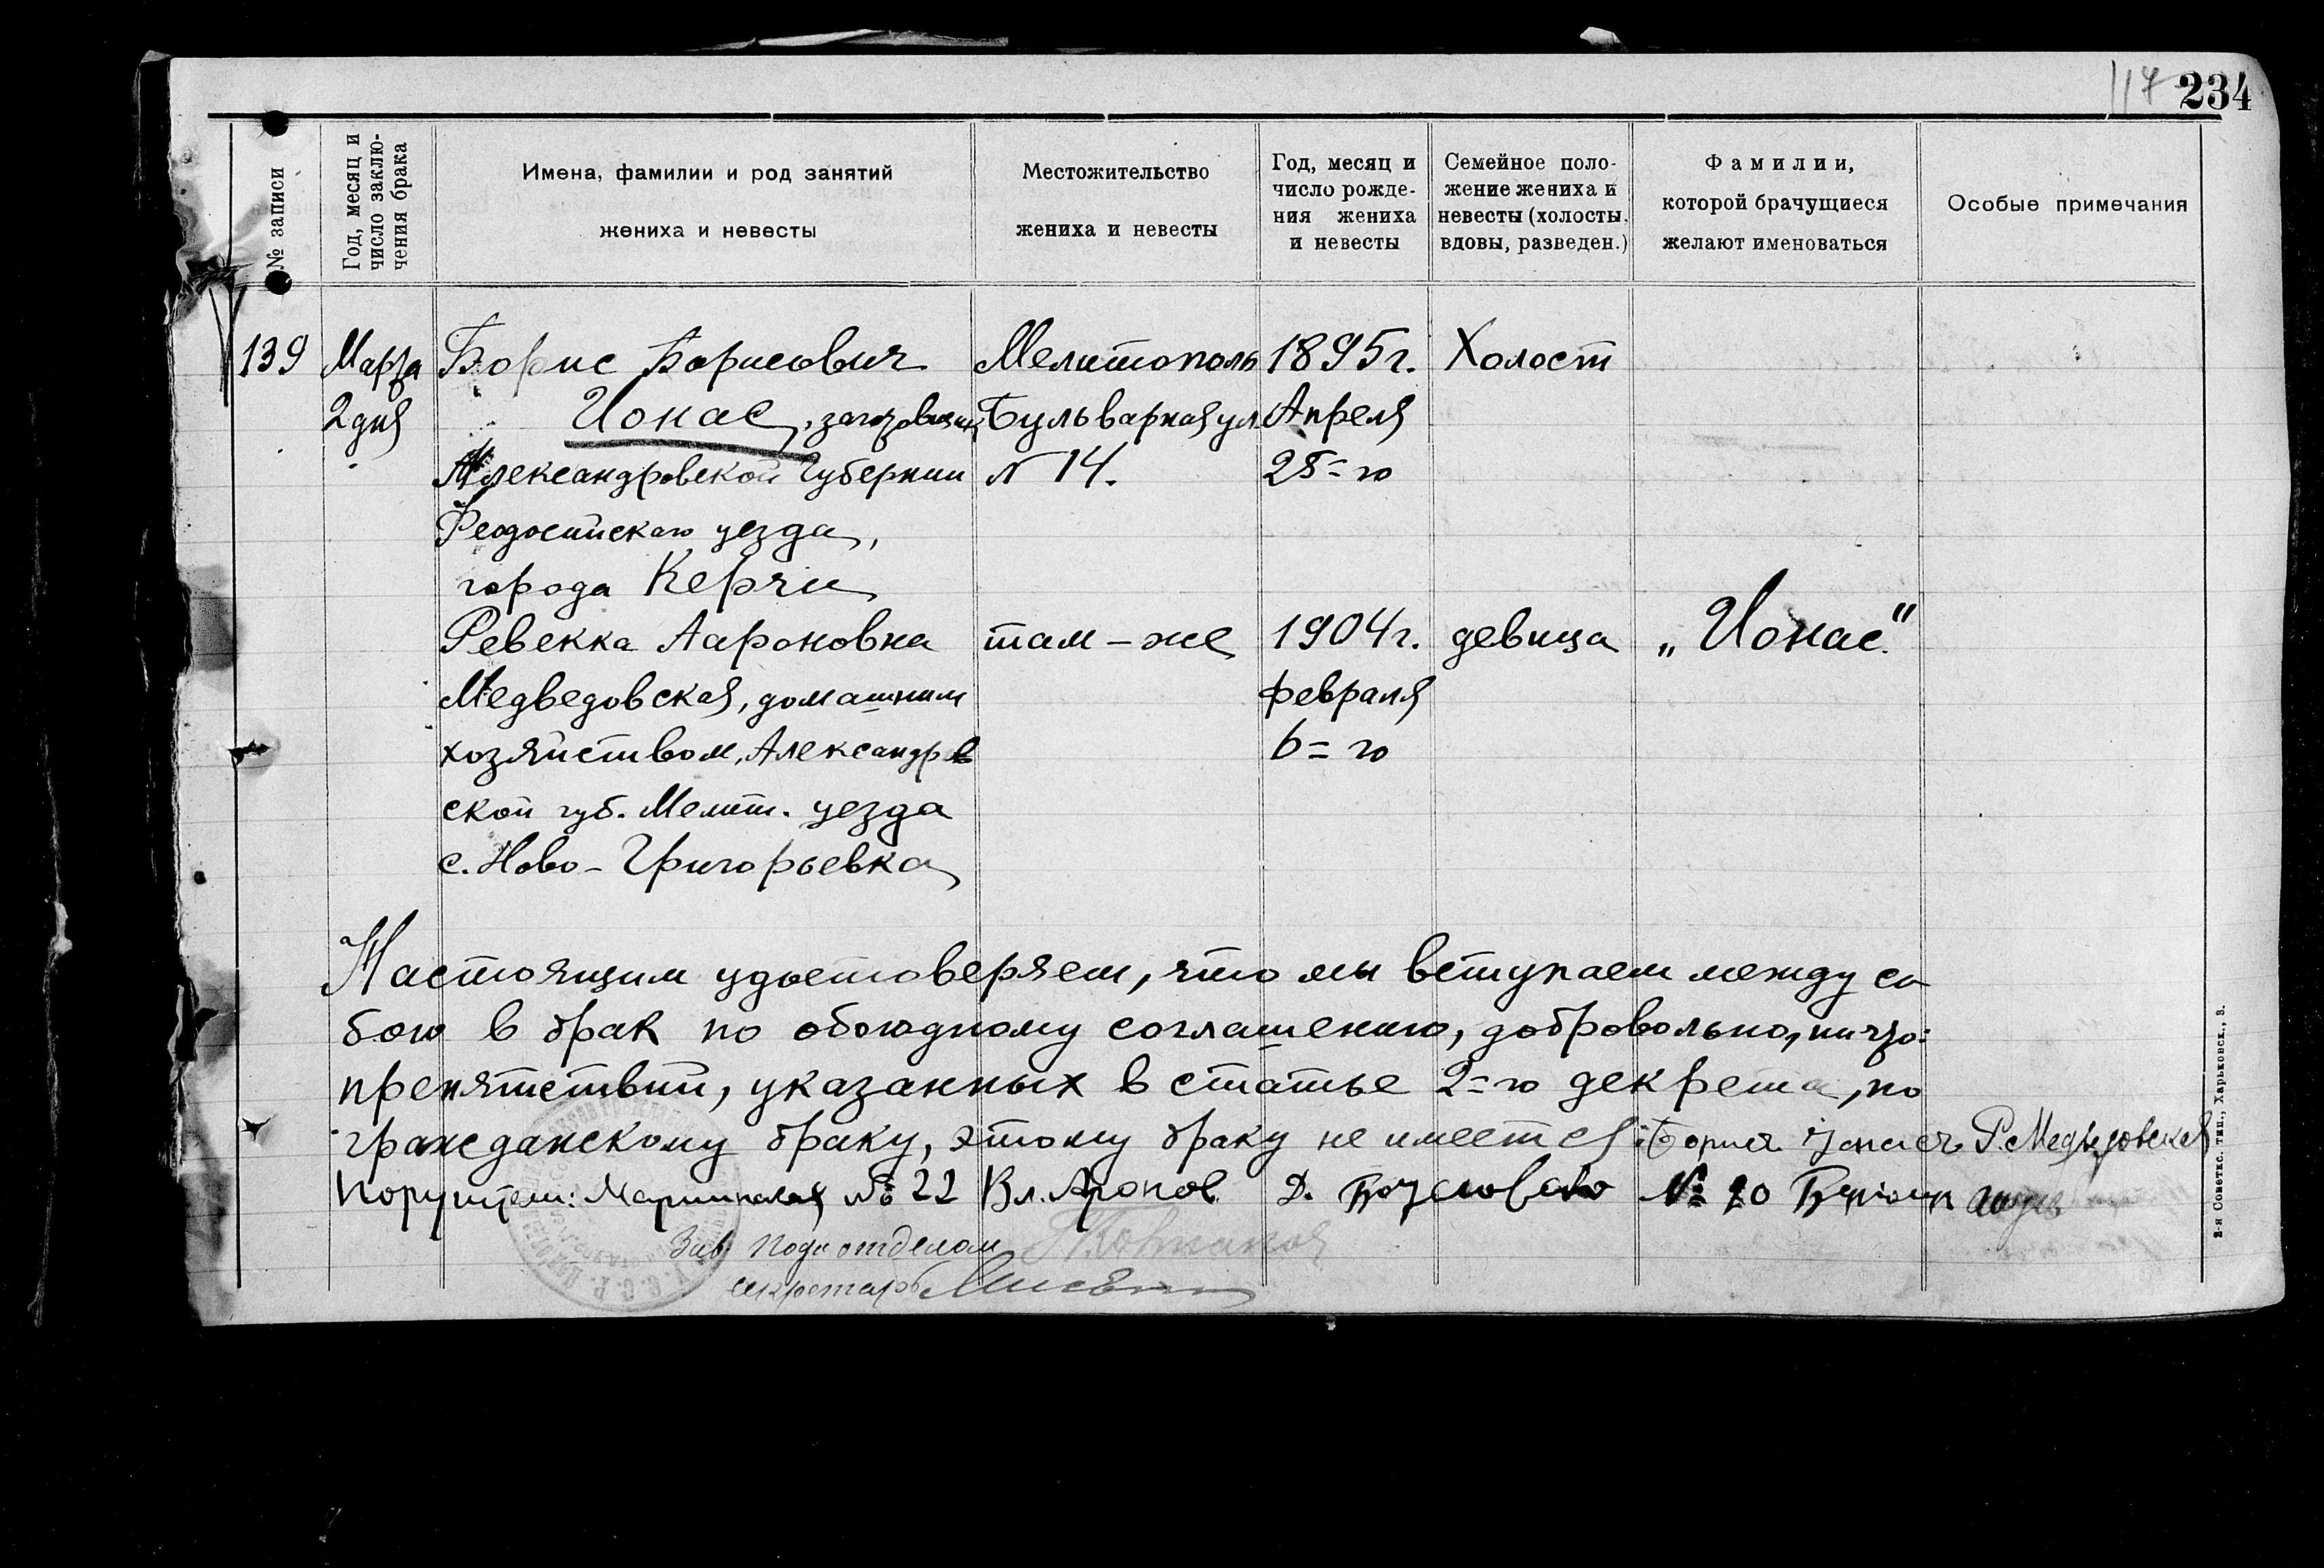 117 234
№ записи
Год, месяц и число заклю-
чения брака
Имена, фамилии и род занятий
жениха и невесты
Местожительство
жениха и невесты
Год, месяц и
число рожде-
ния жениха
и невесты
Семейное поло-
жение жениха и
невесты (холосты,
вдовы, разведен.)
Фамилии,
которой брачущиеся
желают именоваться
Особые примечания
139 Марта Борис Борисович Мелитополь 1895г. Холост
2 дня Ионас, Бульварная ул. Апреля
Александровской Губернии № 14. 25=го
Феодосийскаго уезда,
города Керчи
Ревекка Аароновна там-же 1904г. девица „Ионас"
Медведовская, домашним февраля
хозяйством, Александров 6=го
ской губ. Мелит. уезда
с. Ново-Григорьевка
Настоящим удостоверяем, что мы вступаем между со
бою в брак по обоюдному соглашению, добровольно,
препятствий, указанных в статье 2=го декрета, по
гражданскому браку, этому браку не имеется: Р. Медведовская
Поручители: № 22 Вл. Аронов Д. № 20
Зав. Подотделом
секретарь
2-я Советс. тип., Харьковск., 3.